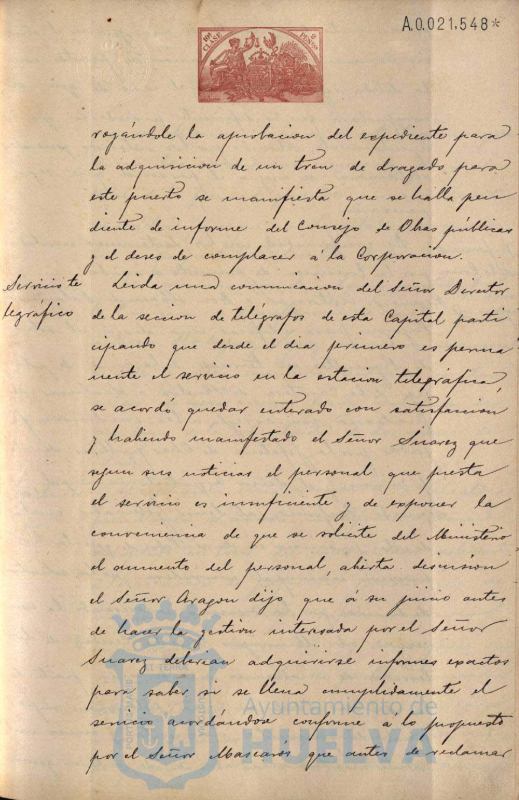 A.0.021.548*
10ª CLASE
2 PENAS
rogándole la aprobacion del expediente para
la adquisicion de un tren de dragado para
este puerto se manifiesta que se halla pen
diente de informe del Consejo de Obras públicas
y el deseo de complacer á la Corporacion.
Servicio te
legráfico
Leida una comunicacion del Señor Director
de la seccion de telégrafos de esta Capital parti
cipando que desde el dia primero es perma
nente el servicio en la estacion telegráfica,
se acordó quedar enterado con satisfaccion
y habiendo manifestado el Señor Suarez que
segun sus noticias el personal que presta
el servicio es insuficiente y de exponer la
conveniencia de que se solicite del Ministerio
el aumento del personal, abierta discusion
el Señor Aragon dijo que á su juicio antes
de hacer la gestion interesada por el Señor
Suarez deberian adquirirse informes exactos
para saber si se llena cumplidamente el
servicio acordándose conforme a lo propuesto
por el Señor Mascarós que antes de reclamar
Ayuntamiento de
HUELVA